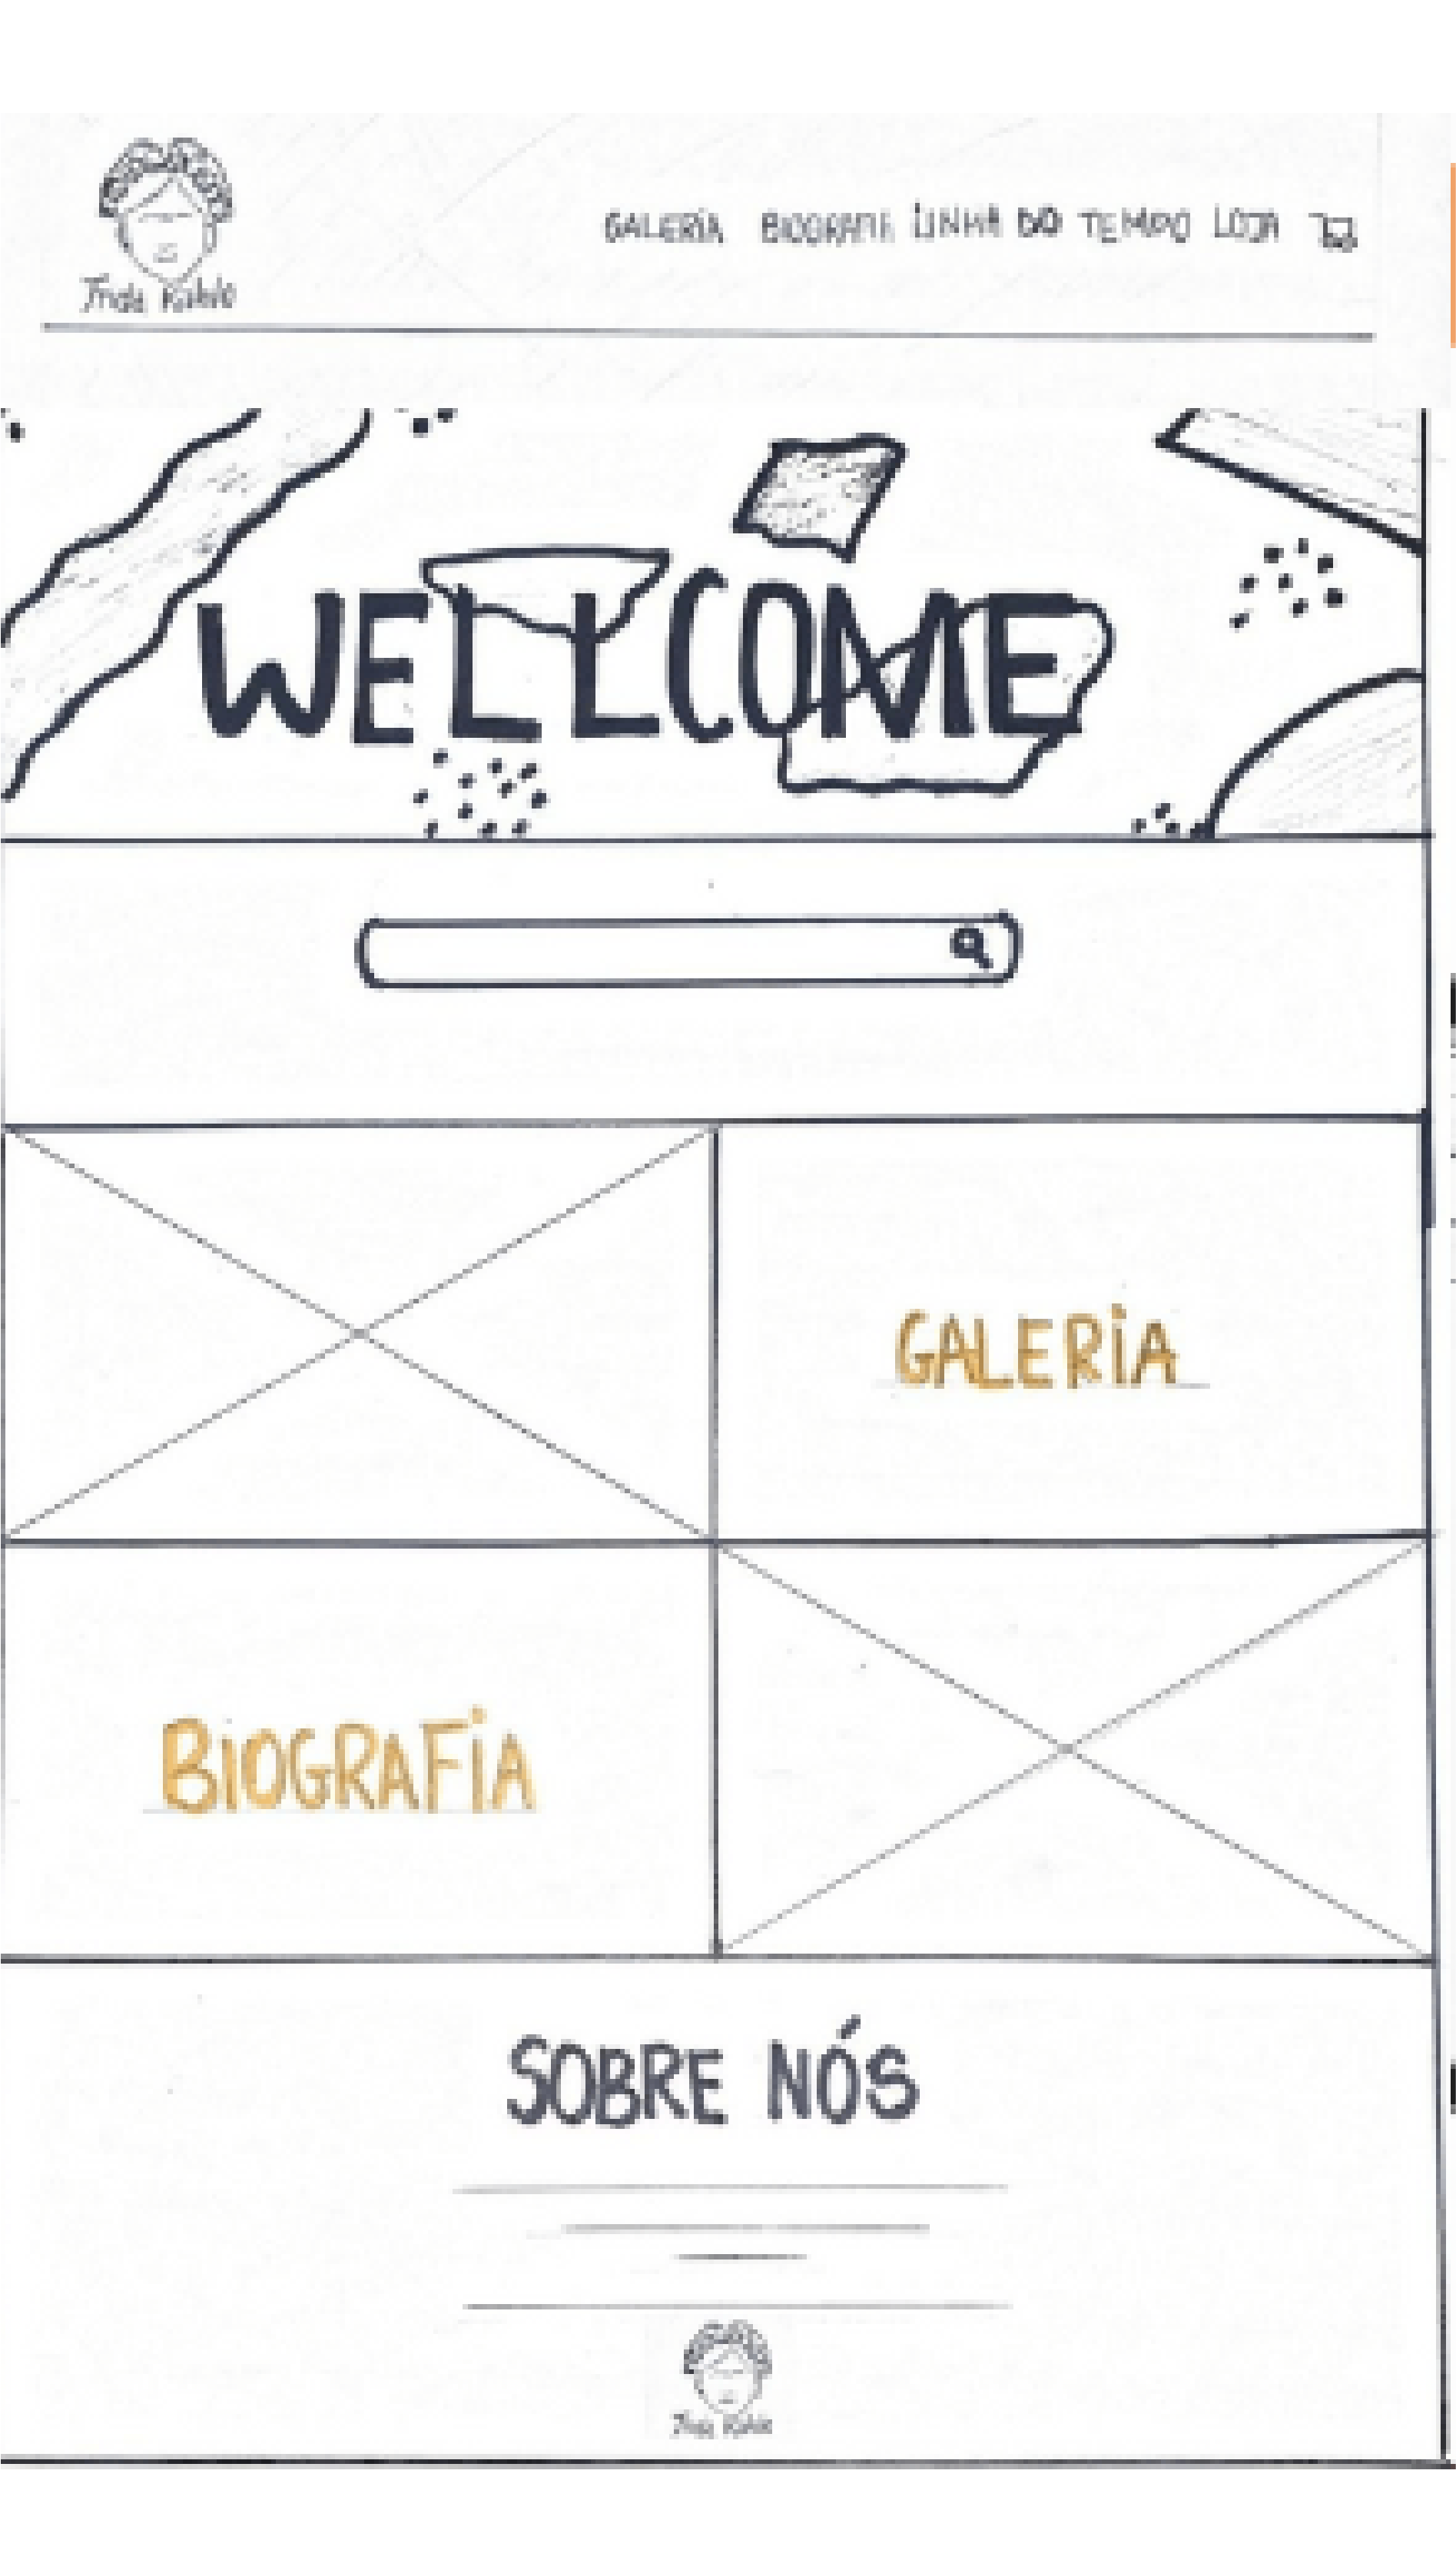 Frida Kahlo
GALERIA BIOGRAFIA LINHA DO TEMPO LOJA
WELLCOME
GALERIA
BIOGRAFIA
SOBRE NÓS
Frida Kahlo